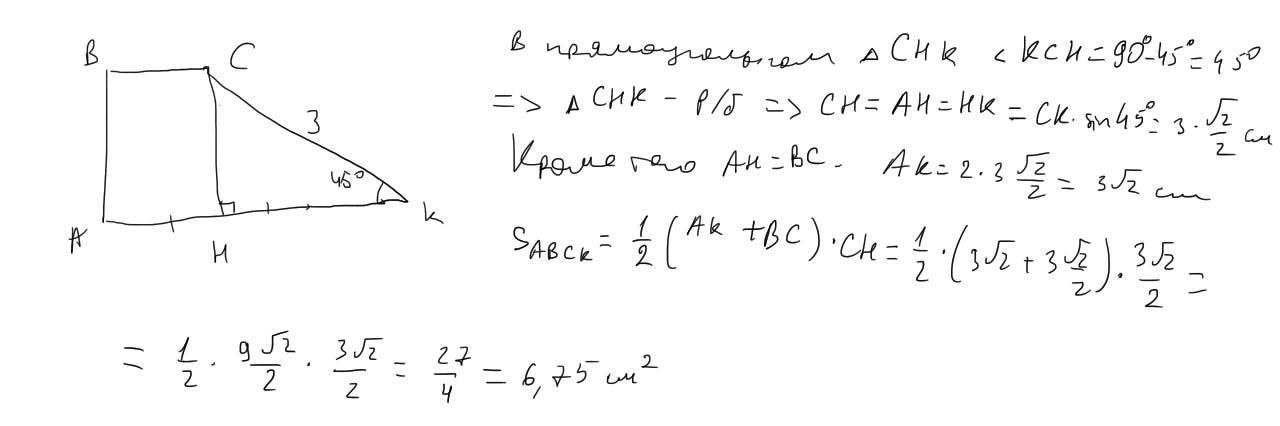 B C
3
45°
A H K
В прямоугольном △CHK < KCH = 90°-45° = 45°
=> △CHK - р/б => CH = AH = HK = CK · sin45° = 3 · √2/2 см
Кроме того AH = BC. AK = 2 · 3 √2/2 = 3√2 см
S_ABCK = 1/2 (AK + BC) · CH = 1/2 · (3√2 + 3 √2/2) · 3√2/2 =
= 1/2 · 9√2/2 · 3√2/2 = 27/4 = 6,75 см²